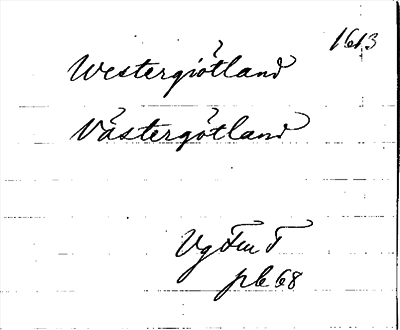 1613
Westergiötland
Västergötland
Vg Fm T
pl 68